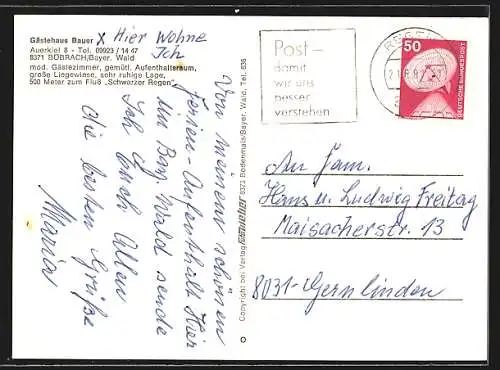 Gästehaus Bauer x Hier wohne
Auerkiel 8 - Tel. 09923 / 14 47
Ich
8371 BÖBRACH/Bayer. Wald
mod. Gästezimmer, gemütl. Aufenthaltsraum,
große Liegewiese, sehr ruhige Lage,
500 Meter zum Fluß „Schwarzer Regen”.
Von meinem schönen
Ferien-Aufenthalt Hier
im Bay. Wald sende
Ich Euch Allen
die besten Grüße
Maria
Copyright bei Verlag 8373 Bodenmais/Bayer. Wald, Tel. 636
Post-
damit
wir uns
besser
verstehen
REGEN
50
DEUTSCHE BUNDESPOST
An Fam.
Hans u. Ludwig Freitag
Maisacherstr. 13
8031-Gernlinden